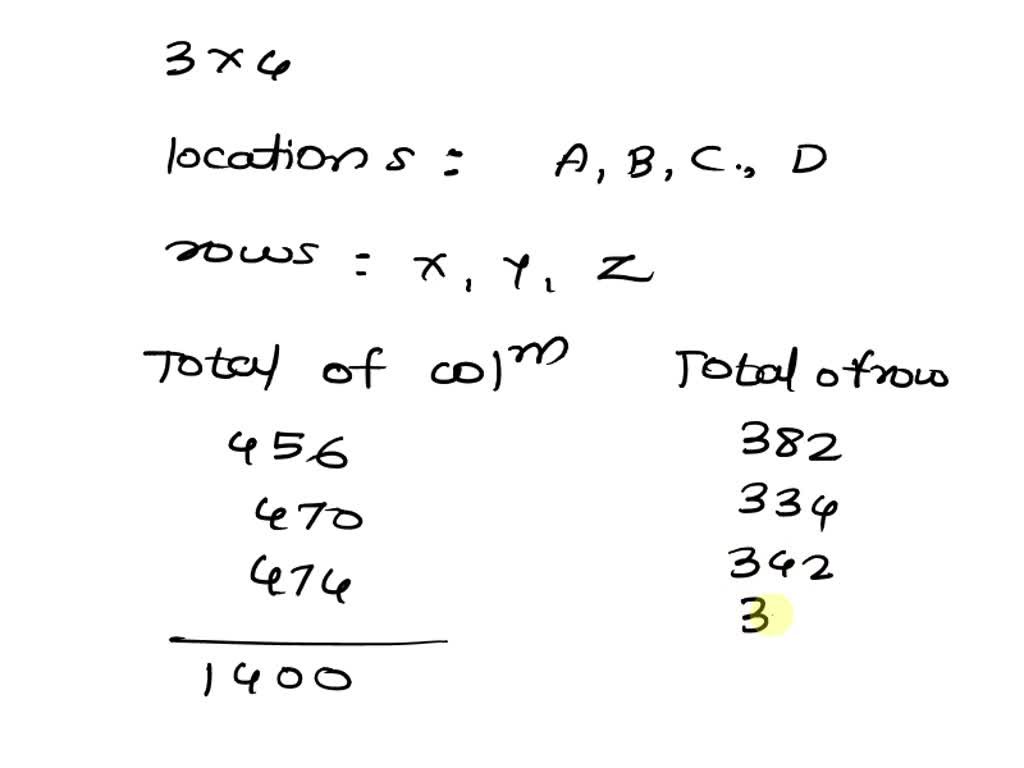 3 × 4
locations : A, B, C., D
rows : X, Y, Z
Total of colm Total of row
456 382
470 334
474 342
3
1400